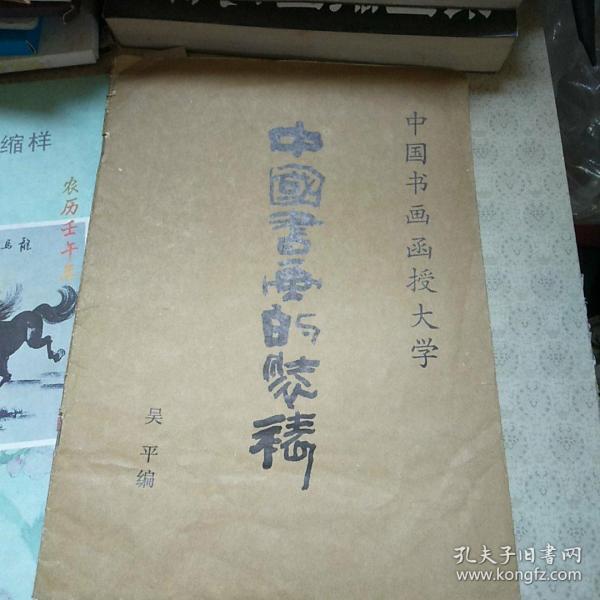 中国书画函授大学
中國書画的装裱
吴平编
缩样
农历壬午
孔夫子旧书网
www.kongfz.com